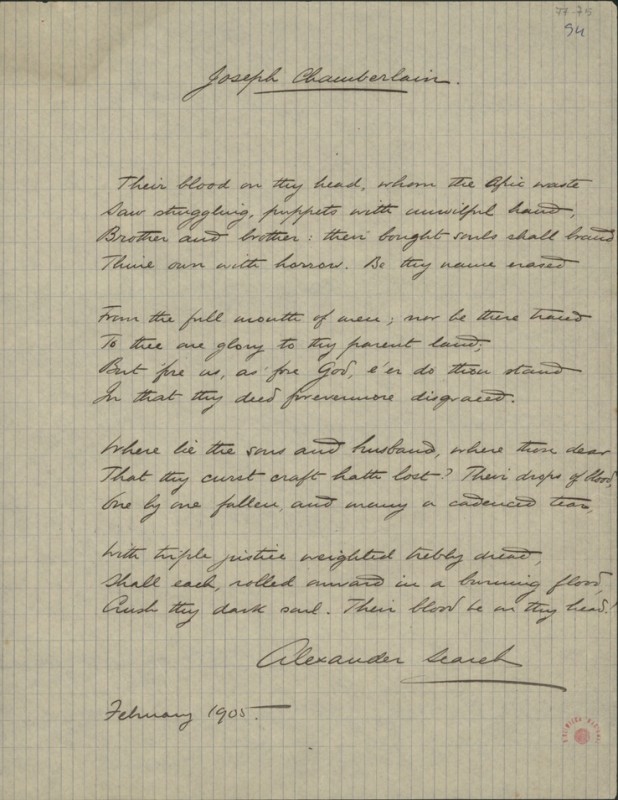 77-75
94
Joseph Chamberlain.
Their blood on thy head, whom the Afric waste
Saw struggling, puppets with unwilful hand,
Brother and brother: their bought souls shall brand
Thine own with horror. Be thy name erased
From the full mouth of men; nor be there traced
To thee one glory to thy parent land;
But 'fore us, as 'fore God, e'er do thou stand
In that thy deed forevermore disgraced.
Where lie the sons and husband, where those dear
That thy curst craft hath lost? Their drops of blood,
One by one fallen, and many a cadenced tear,
With triple justice weighted trebly dread,
Shall each, rolled onward in a burning flood,
Crush thy dark soul. Their blood be on thy head!
Alexander Search
February 1905.